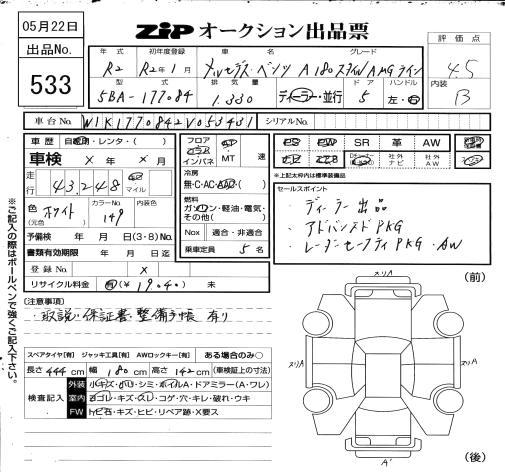 05月22日
出品No.
533
ZIP オークション出品票
評価点
4.5
内装
B
年式 初年度登録 車名 グレード
R2 R2年1月 メルセデス・ベンツ A180スタイル AMGライン
型式 排気量 ドア ハンドル
5BA-177084 1.330 ディーラー・並行 5 左・右
車台No. W1K1770842V053431 シリアルNo.
車歴 自家用・レンタ・( )
車検 × 年 × 月
走行 43,248 km マイル
色 (元色) ホワイト カラーNo. 149 内装色
予備検 年 月 日(3・8)No.
書類有効期限 年 月 日迄
登録No. ×
リサイクル料金 有(¥19.040) 未
フロア コラム インパネ AT MT 速
冷房 無・C・AC・AAC・( )
燃料 ガソリン・軽油・電気・その他( )
Nox 適合・非適合
乗車定員 5 名
PS PW SR 革 AW
社外ナビ 社外AW
※上記太枠内は標準装備品
セールスポイント
・ディーラー出品
・アドバンスドPKG
・レーダーセーフティPKG・AW
(注意事項)
・取説・保証書・整備手帳 有り
スペアタイヤ[有] ジャッキ工具[有] AWロックキー[有] ある場合のみ○
長さ 444 cm 幅 180 cm 高さ 142 cm (車検証上の寸法)
検査記入
外装 小キズ・ヘコリ・シミ・ホイルA・ドアミラー(A・ワレ)
室内 ヨゴレ・キズ・スレ・コゲ・穴・キレ・破れ・ウキ
FW トビ石・キズ・ヒビ・リペア跡・X要ス
※ご記入の際はボールペンで強くご記入下さい。
(前)
スリA
スリA
スリA
A'
(後)